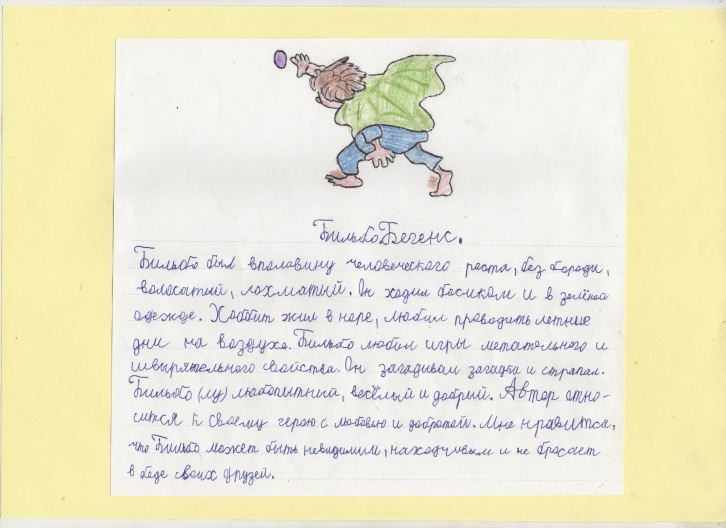 Бильбо Бегенс.
Бильбо был вполовину человеческого роста, без бороды,
волосатый, лохматый. Он ходил босиком и в зелёной
одежде. Хоббит жил в норе, любил проводить летние
дни на воздухе. Бильбо любил игры метательного и
швырятельного свойства. Он загадывал загадки и стряпал.
Бильбо любопытный, весёлый и добрый. Автор отно-
сится к своему герою с любовью и добротой. Мне нравится,
что Бильбо может быть невидимым, находчивым и не бросает
в беде своих друзей.